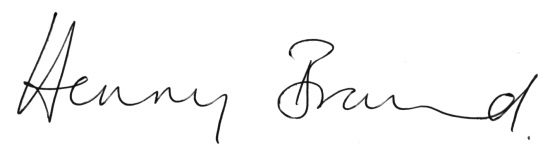 Henny Braund.